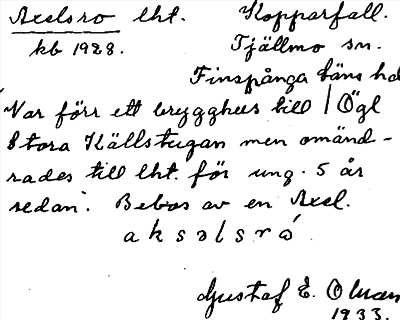 Axelsro lht. Kopparfall.
kb 1928. Tjällmo sn.
Finspånga läns hd
"Var förr ett brygghus till Ögl
Stora Källstugan men omänd-
rades till lht. för ung. 5 år
sedan". Bebos av en Axel.
aksəlsrω
Gustaf E.
1933.